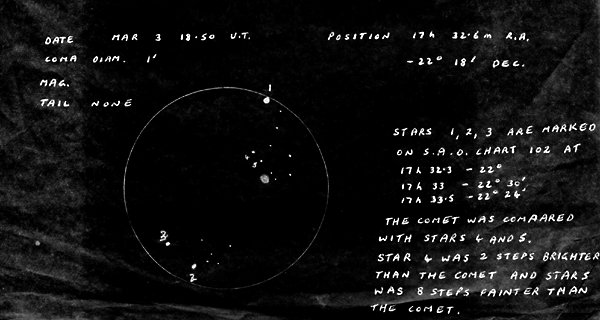 DATE MAR 3 18.50 U.T.
COMA DIAM. 1'
MAG.
TAIL NONE
POSITION 17h 32.6m R.A.
-22° 18' DEC.
1
4
5
3
2
STARS 1, 2, 3 ARE MARKED
ON S.A.O. CHART 102 AT
17h 32.3 -22°
17h 33 -22° 30'
17h 33.5 -22° 24'
THE COMET WAS COMPARED
WITH STARS 4 AND 5.
STAR 4 WAS 2 STEPS BRIGHTER
THAN THE COMET AND STAR 5
WAS 8 STEPS FAINTER THAN
THE COMET.